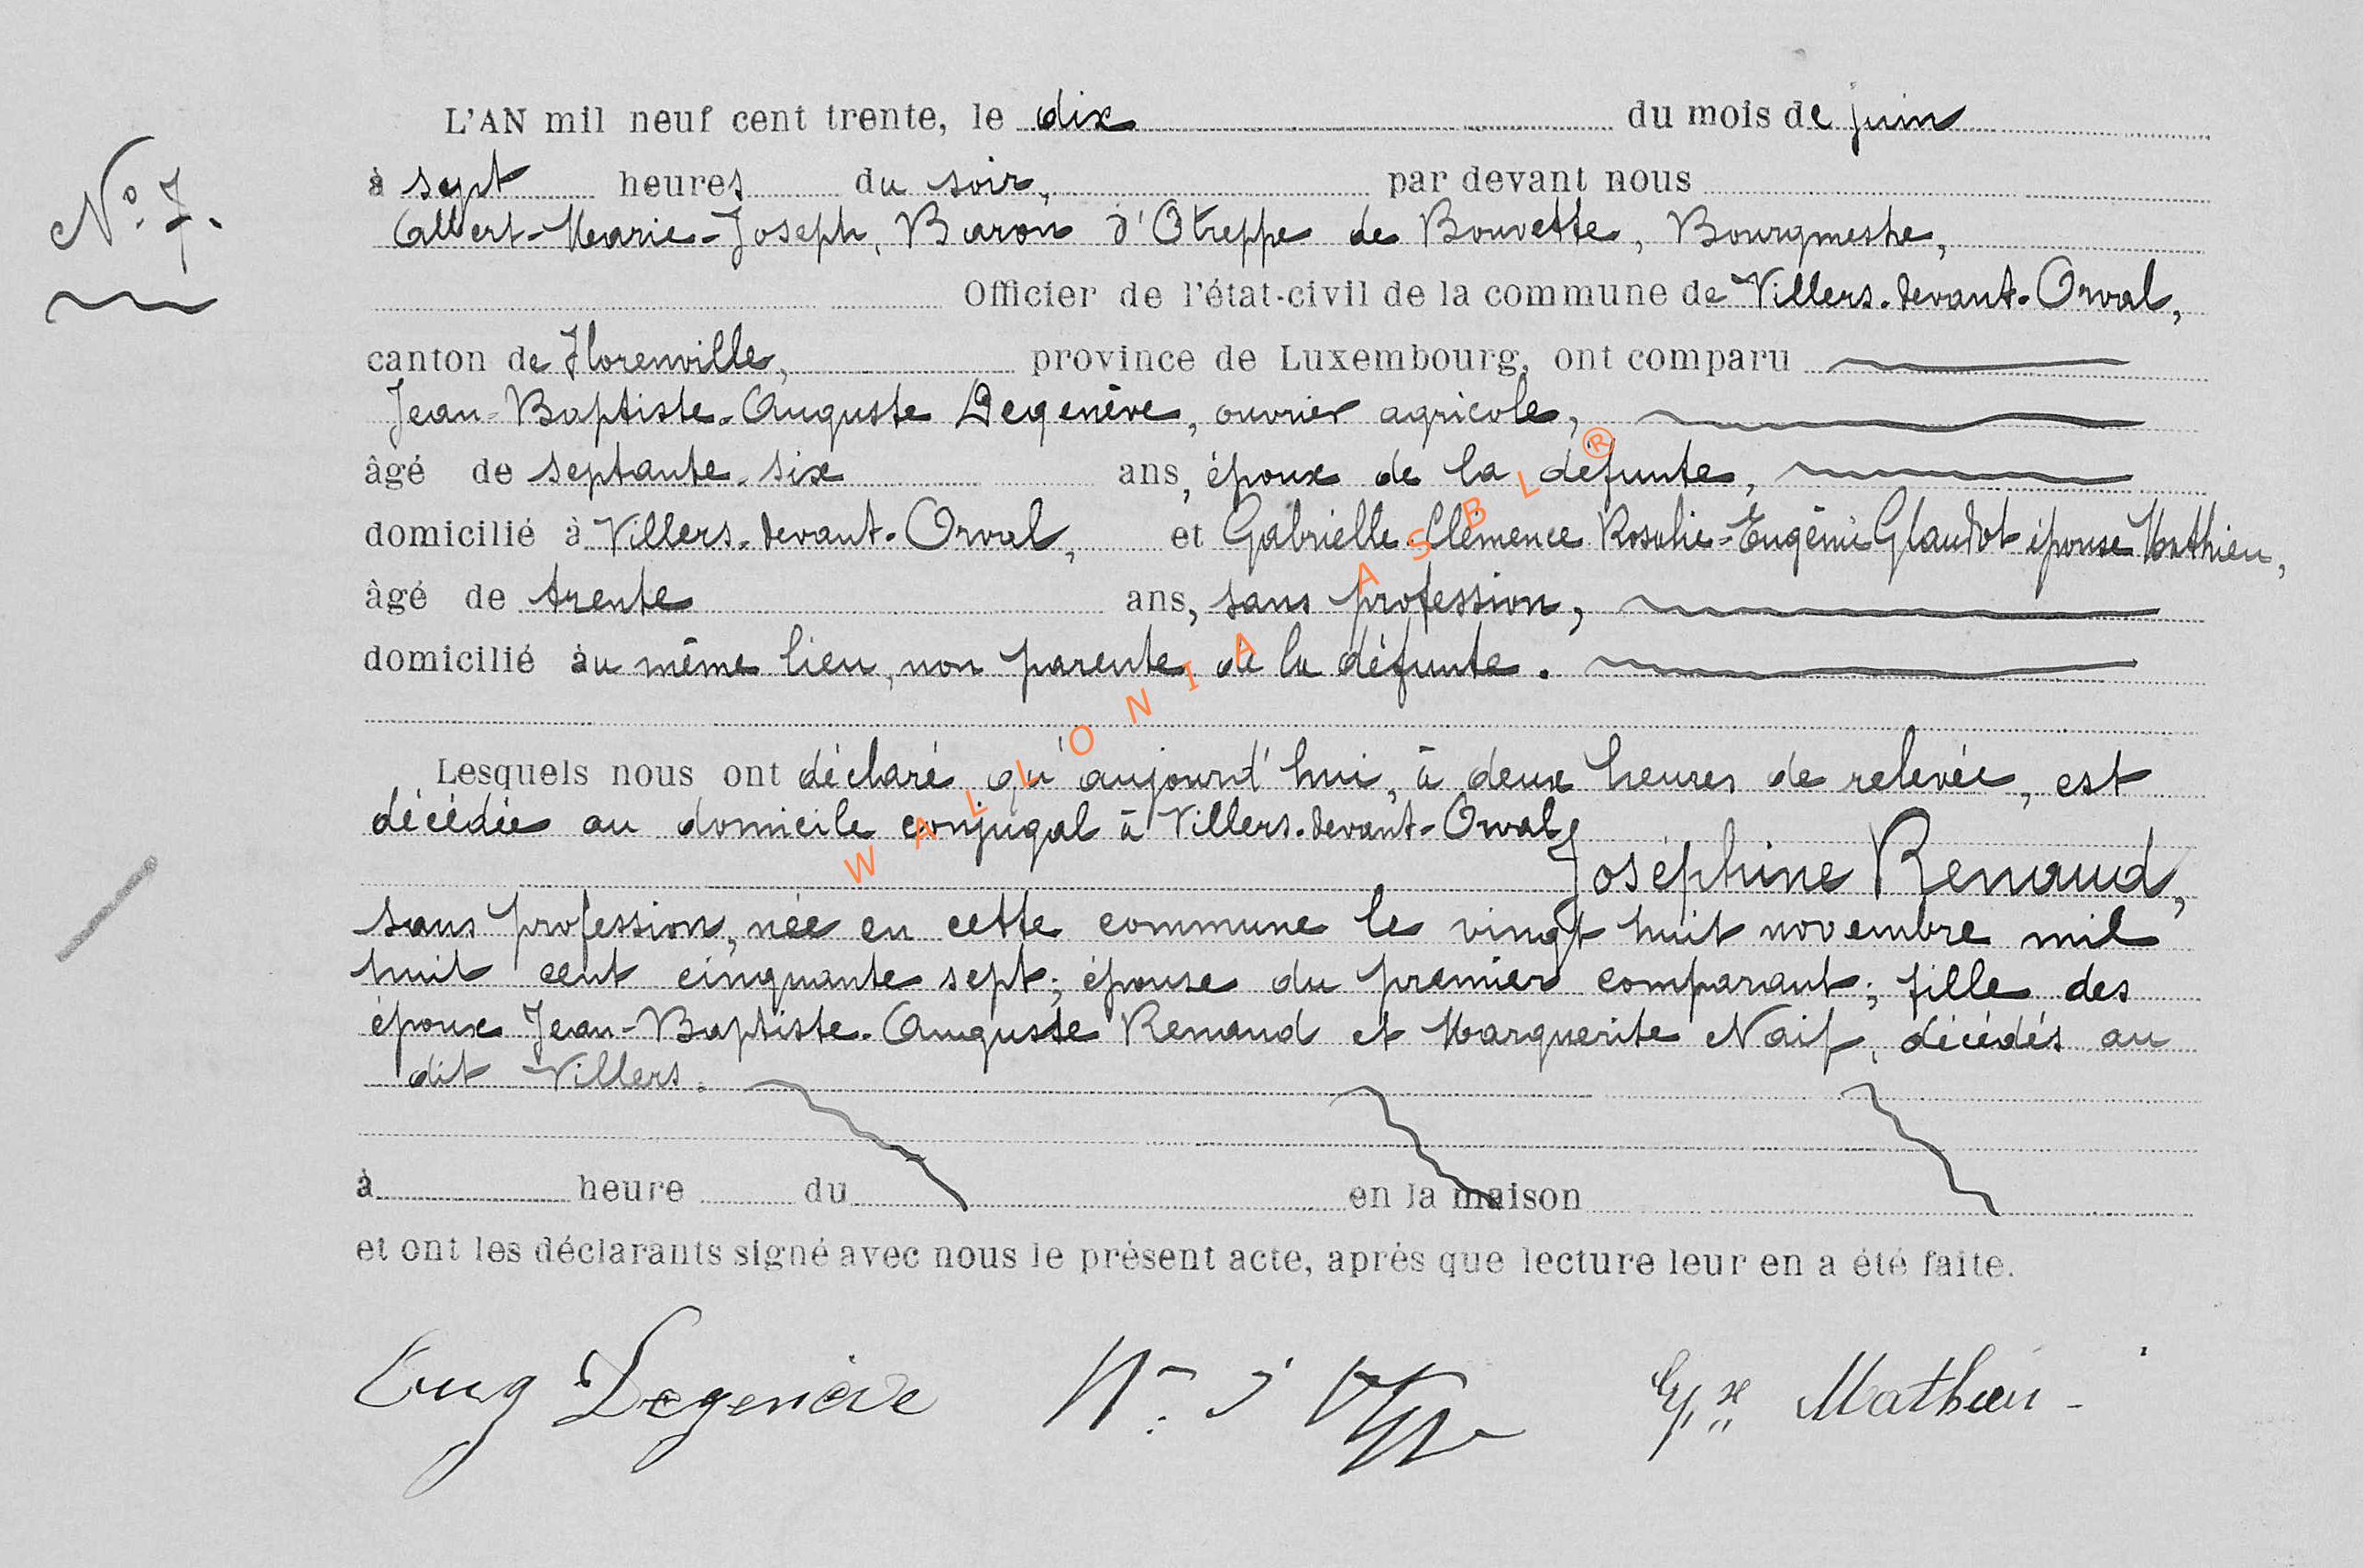 L'AN mil neuf cent trente, le dix du mois de juin
N° 7.
à sept heures du soir, par devant nous
Albert-Marie-Joseph, Baron d'Otreppe de Bouvette, Bourgmestre,
Officier de l'état-civil de la commune de Villers-devant-Orval,
canton de Florenville, province de Luxembourg, ont comparu
Jean-Baptiste-Auguste Degenève, ouvrier agricole,
âgé de septante-six ans, époux de la défunte,
domicilié à Villers-devant-Orval, et Gabrielle-Clémence Rosalie-Eugénie Glaudot épouse Mathieu,
âgé de trente ans, sans profession,
domicilié au même lieu, non parente de la défunte.
Lesquels nous ont déclaré qu'aujourd'hui, à deux heures de relevée, est
décédée au domicile conjugal à Villers-devant-Orval,
Joséphine Renaud,
sans profession, née en cette commune le vingt huit novembre mil
huit cent cinquante sept; épouse du premier comparant; fille des
époux Jean-Baptiste-Auguste Renaud et Marguerite Naif, décédés au
dit Villers.
à heure du en la maison
et ont les déclarants signé avec nous le présent acte, après que lecture leur en a été faite.
Degenève Mathieu
WALLONIA ASBL ®